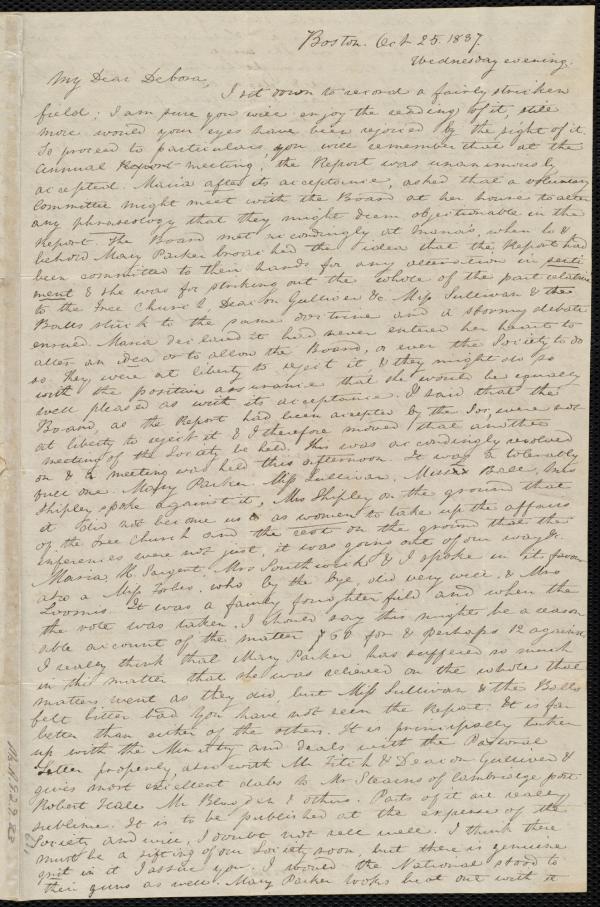 Boston. Oct 25. 1837.
Wednesday evening.
My Dear Debora,
I set down to record a fairly stricken
field; I am sure you will enjoy the reading of it, still
more would your eyes have been rejoiced by the sight of it.
To proceed to particulars, you will remember that at the
annual Report meeting, the Report was unanimously
accepted. Maria after its acceptance, asked that a voluntary
Committee might meet with the Board at her house to alter
any phraseology that they might deem objectionable in the
Report. The Board met accordingly at Maria's, when lo &
behold Mary Parker broached the idea that the Report had
been committed to their hands for any alteration in senti
ment & she was for striking out the whole of the part relative
to the Free Church Deacon Gulliver &c. Miss Sullivan & the
Balls stuck to the same doctrine and a stormy debate
ensued. Maria declared it had never entered her heart to
alter an idea or to allow the Board, or even the Society to do
so. They were at liberty to reject it & they might do so
with the positive assurance that she would be equally
well pleased as with its acceptance. I said that the
Board, as the Report had been accepted by the Soc, were not
at liberty to reject it & I therefore moved that another
meeting of the Society be held. This was accordingly resolved
on & a meeting was held this afternoon. It was a tolerably
full one. Mary Parker, Miss Sullivan, Ball, Mrs
Shipley spoke against it, Mrs Shipley on the ground that
it did not become us as women to take up the affairs
of the Free Church and the rest on the ground that the
inferences were not just, it was going out of our way &c.
Maria, H. Sargent, Mrs Southwick & I spoke in its favor
also a Miss Forbes, who by the bye, did very well, & Mrs
Loomis. It was a fairly foughten field and when the
the vote was taken, I should say this might be a reason
able account of the matter, for & perhaps 12 against
I really think that Mary Parker has suffered so much
in this matter that she was relieved on the whole that
matters went as they did, but Miss Sullivan & the Balls
felt bitter bad. You have not seen the Report. It is far
better than either of the others. It is principally taken
up with the Ministry and deals with the Pastoral
Letter properly, also with Mr Fitch & Deacon Gulliver &
gives most excellent dabs to Mr Stearns of Cambridge port
Robert Hall Mr Blagden & others. Parts of it are really
sublime. It is to be published at the expense of the
Society and will, I doubt not sell well. I think there
must be a sifting of our Society soon, but there is genuine
grit in it I assure you. I would the National stood to
their guns as well. Mary Parker looks beat out with it